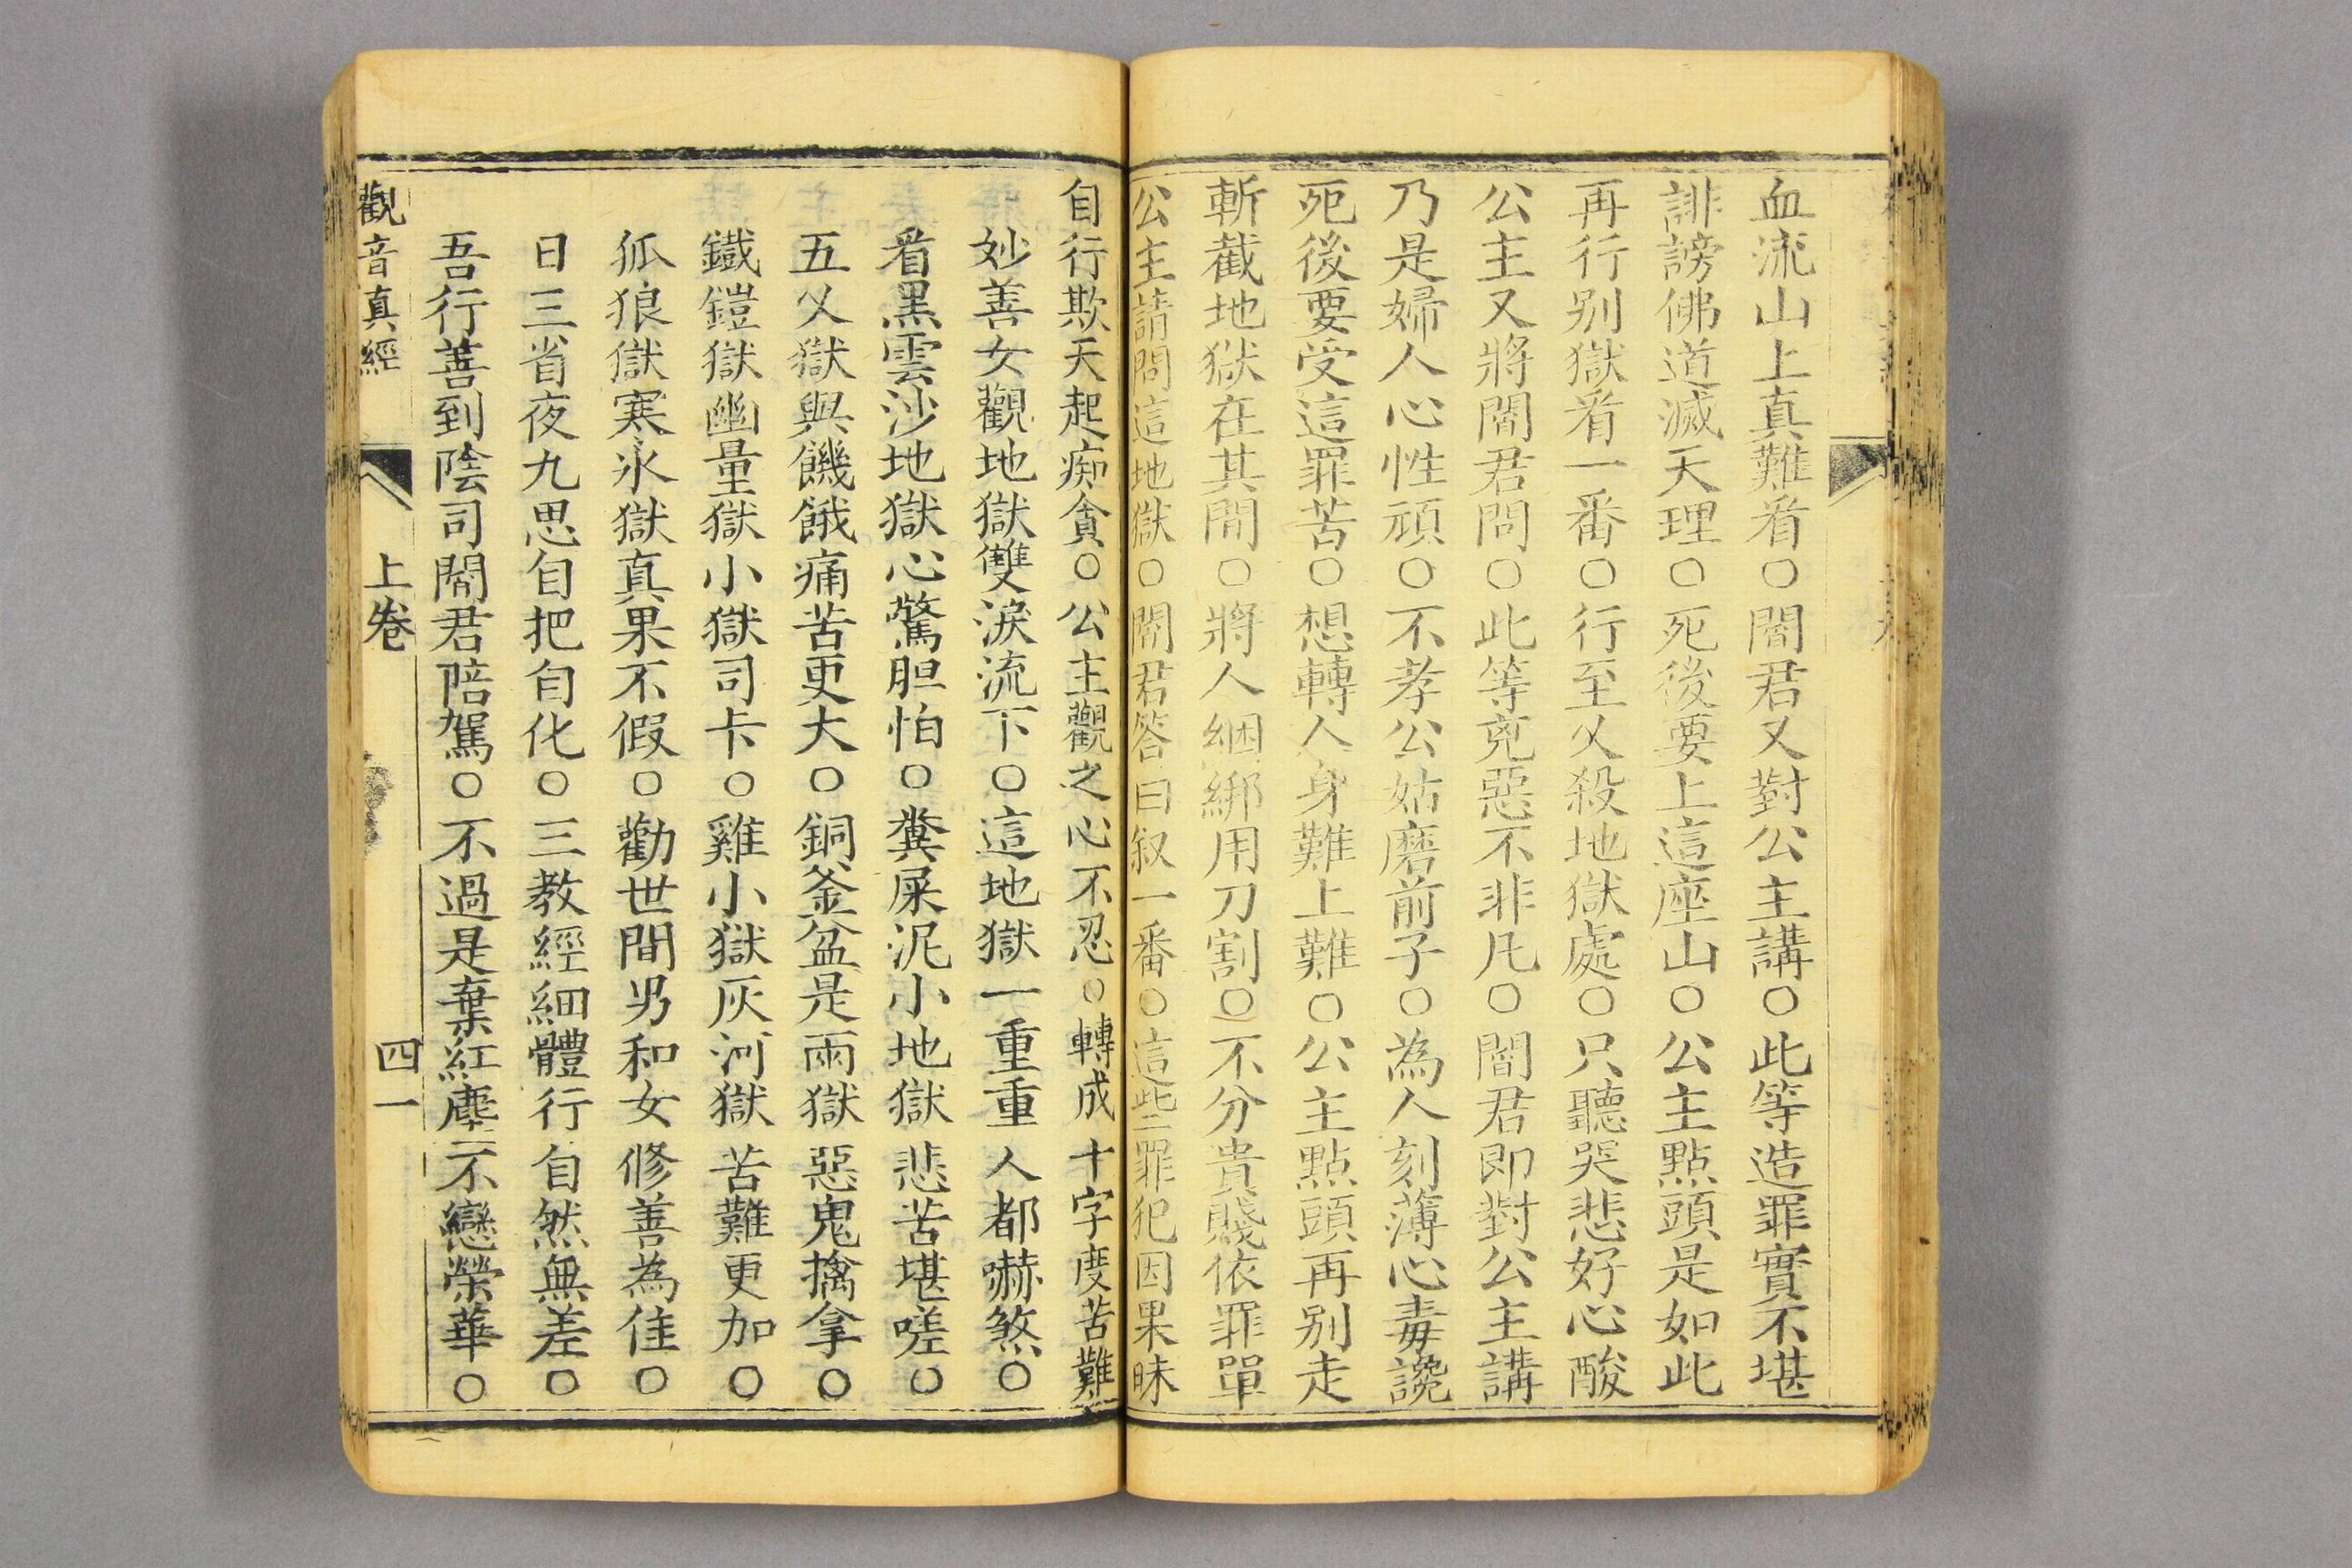 血流山上真難看○閻君又對公主講○此等造罪實不堪
誹謗佛道滅天理○死後要上這座山○公主點頭是如此
再行別獄看一番○行至乂殺地獄處○只聽哭悲好心酸
公主又將閻君問○此等兇惡不非凡○閻君即對公主講
乃是婦人心性頑○不孝公姑磨前子○為人刻薄心毒讒
死後要受這罪苦○想轉人身難上難○公主點頭再別走
斬截地獄在其間○將人綑綁用刀割○不分貴賤依罪單
公主請問這地獄○閻君答曰叙一番○這些罪犯因果昧
自行欺天起痴貪○公主觀之心不忍○轉成十字度苦難
妙善女觀地獄雙淚流下○這地獄一重重人都嚇煞○
看黑雲沙地獄心驚胆怕○糞屎泥小地獄悲苦堪嗟○
五乂獄與饑餓痛苦更大○銅釜盆是兩獄惡鬼擒拿○
鐵鎧獄幽量獄小獄司卡○雞小獄灰河獄苦難更加○
狐狼獄寒氷獄真果不假○勸世間男和女修善為佳○
日三省夜九思自把自化○三教經細體行自然無差○
吾行善到陰司閻君陪駕○不過是棄紅塵不戀榮華○
觀音真經 上卷 四一